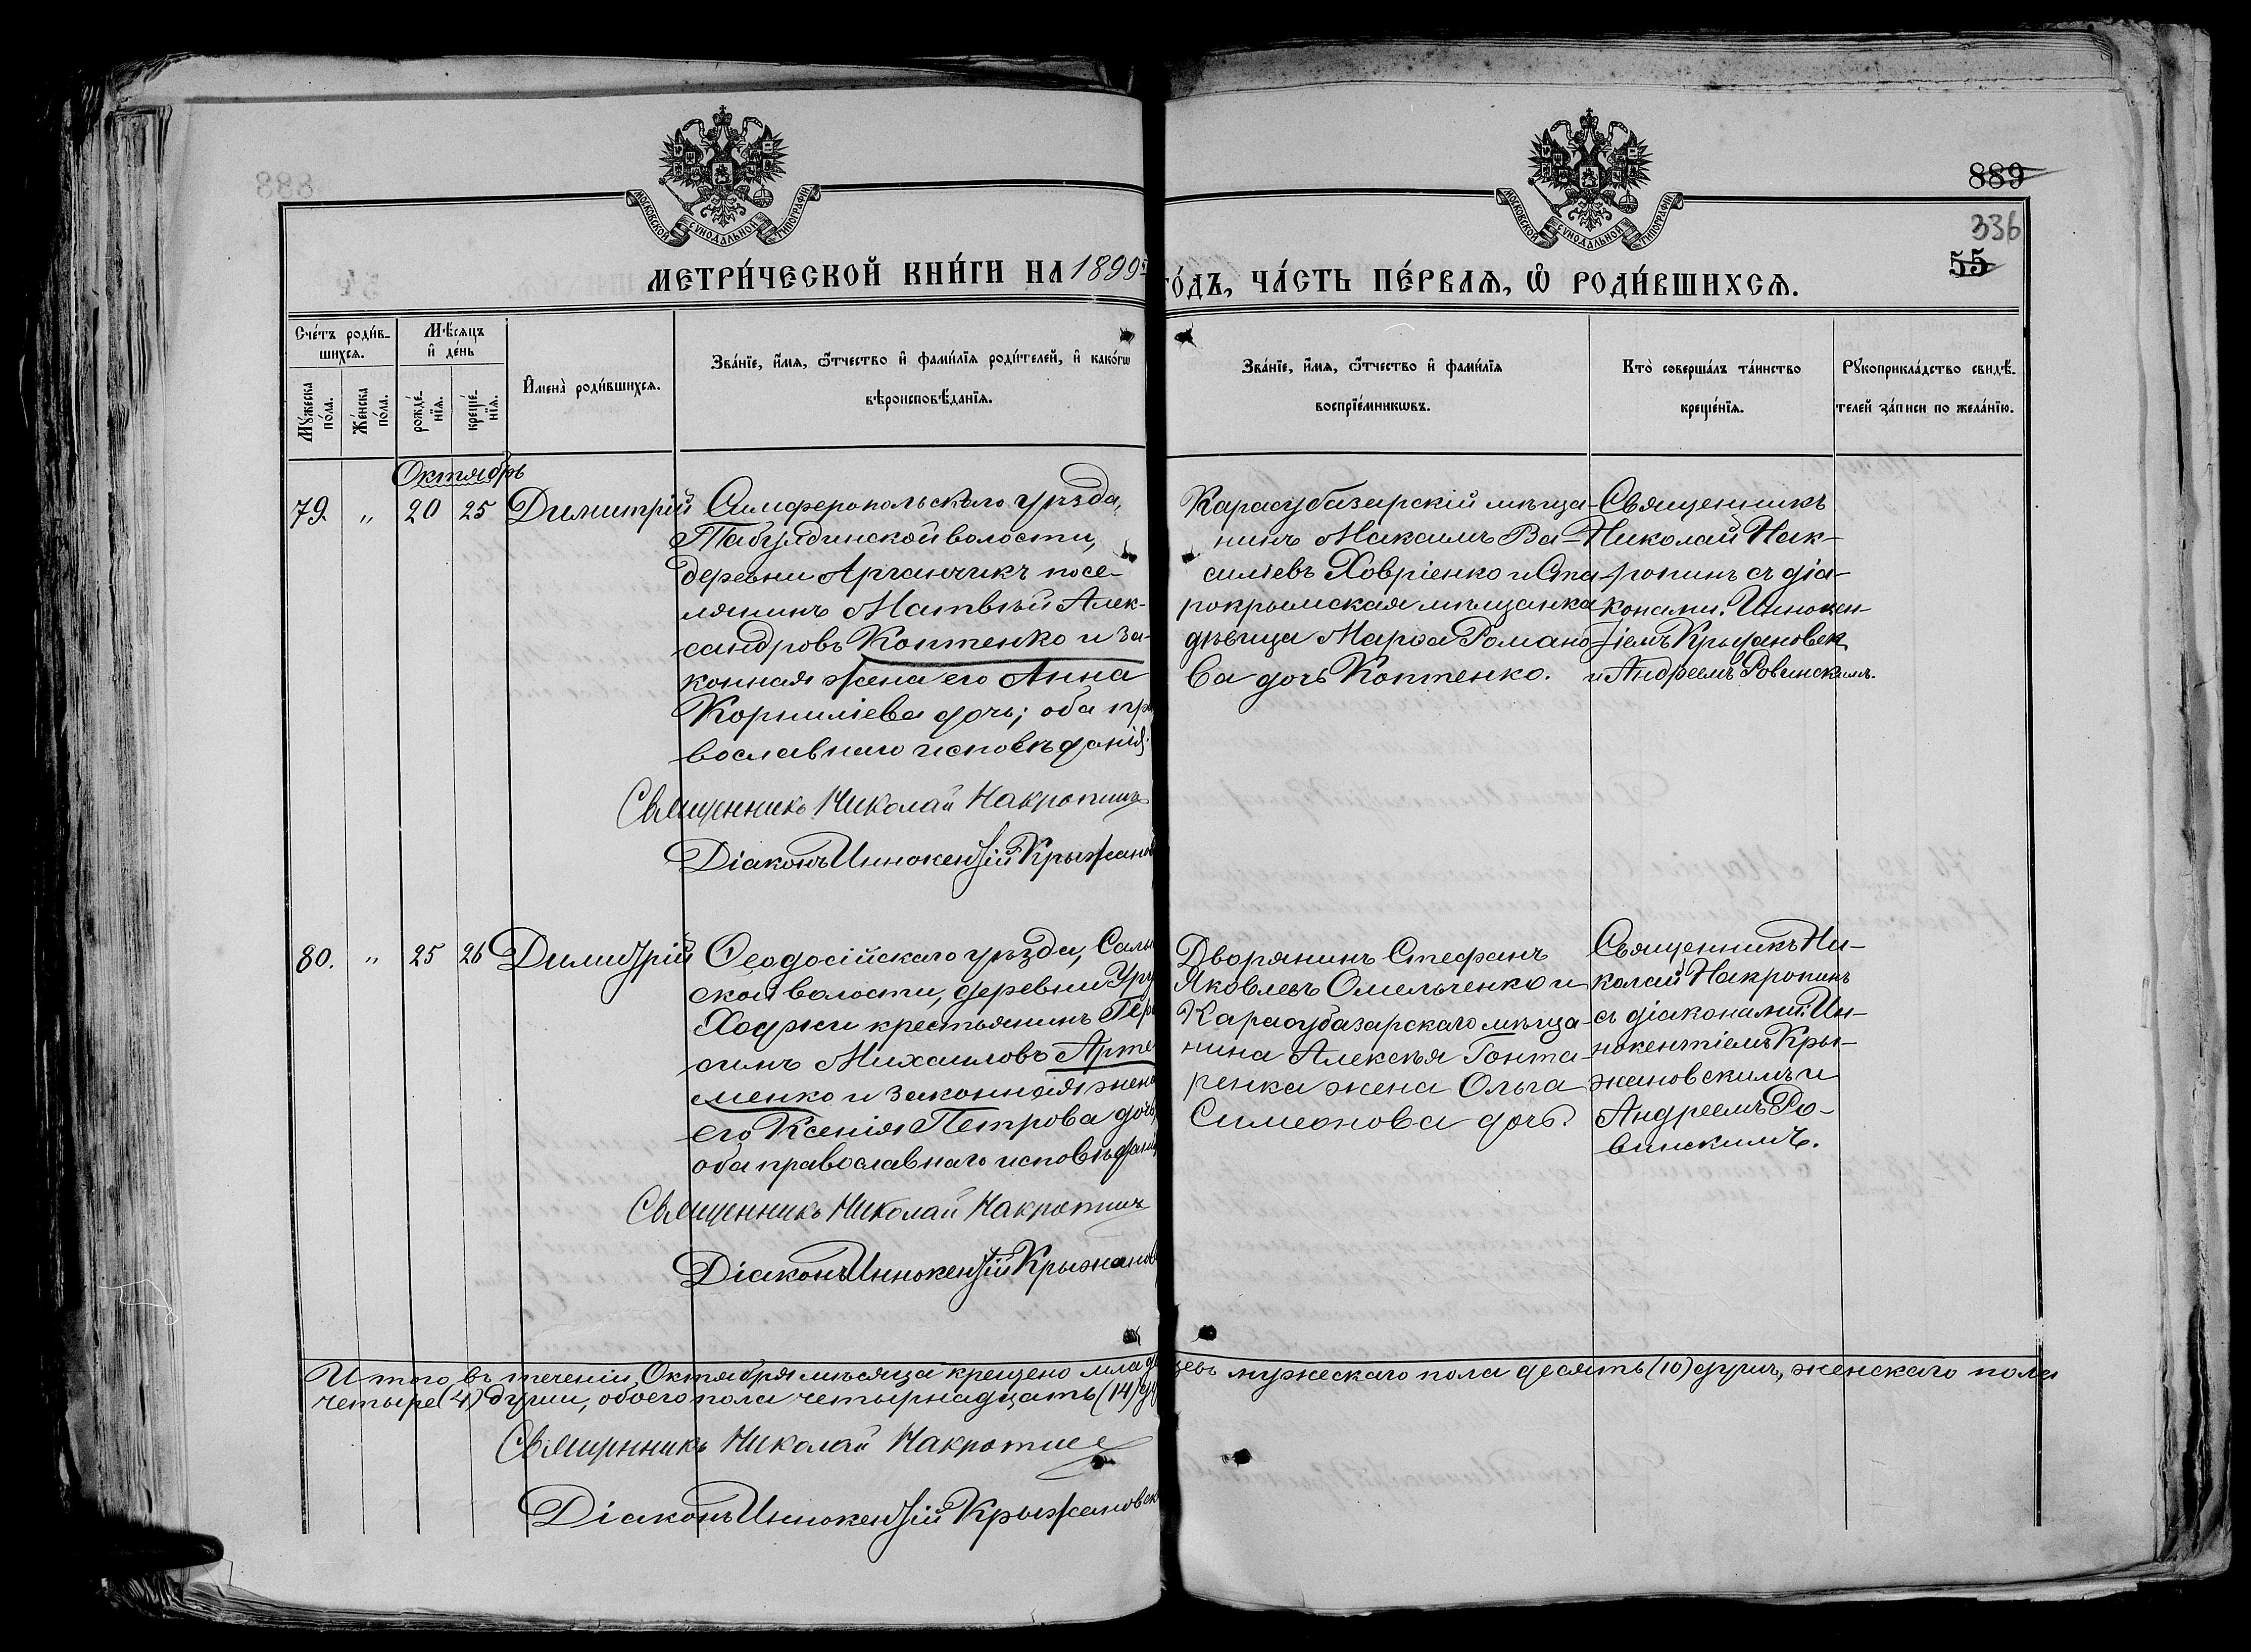 889
336
55
МОСКОВСКОЙ СѴНОДАЛЬНОЙ ТИПОГРАФІИ
МОСКОВСКОЙ СѴНОДАЛЬНОЙ ТИПОГРАФІИ
МЕТРИ́ЧЕСКОЙ КНИ́ГИ НА 1899й
ГО́ДЪ, ЧА́СТЬ ПЕ́РВАѦ, Ѡ҆ РОДИ́ВШИХСѦ.
Сче́тъ роди́в-
шихсѧ.
Мꙋ́жеска
по́ла.
Же́нска
по́ла.
Мѣ́сѧцъ
и҆ де́нь
рожде́-
нїѧ.
креще́-
нїѧ.
И҆мена̀ роди́вшихсѧ.
Зва́нїе, и҆́мѧ, ѻ҆́тчество и҆ фами́лїѧ роди́телей, и҆ како́гѡ
вѣроисповѣ́данїѧ.
Зва́нїе, и҆́мѧ, ѻ҆́тчество и҆ фами́лїѧ
воспрїе́мникѡвъ.
Кто̀ соверша́лъ та́инство
креще́нїѧ.
Рꙋкоприкла́дство свидѣ́-
телей за́писи по жела́нїю.
Октябрь
79. „ 20 25 Димитрій
Симферопольскаго уѣзда,
Табулдинской волости,
деревни Арганчикъ посе-
лянинъ Матвѣй Алек-
сандровъ Коптенко и за-
конная жена его Анна
Корниліева дочь; оба пра
вославнаго исповѣданія.
Священникъ Николай Накропинъ
Діаконъ Иннокентій Крыжанов
Карасубазарскій мѣща-
нинъ Максимъ Ва-
силіевъ Ховріенко и Ста-
рокрымская мѣщанка
дѣвица Марѳа Романо-
ва дочь Коптенко.
Священникъ
Николай Нак-
ропинъ съ діа-
конами: Иннокен-
тіемъ Крыжановск
и Андреемъ Ровинскимъ.
80. „ 25 26 Димитрій
Ѳеодосійскаго уѣзда, Салы
ской волости, деревни Уру
Ходжи крестьянинъ Гера
симъ Михаиловъ Арте
менко и законная жена
его Ксенія Петрова дочь,
оба православнаго исповѣдані
Священникъ Николай Накропинъ
Діаконъ Иннокентій Крыжанов
Дворянинъ Стефанъ
Яковлевъ Омельченко и
Карасубазарскаго мѣща-
нина Алексѣя Гонта-
ренка жена Ольга
Симеонова дочь.
Священникъ Ни-
колай Накропинъ
съ діаконами: Ин-
нокентіемъ Кры-
жановскимъ и
Андреемъ Ро-
винскимъ.
Итого въ теченіи Октября мѣсяца крещено младенцевъ мужескаго пола десять (10) душъ, женскаго пола
четыре (4) души, обоего пола четырнадцать (14) ду
Священникъ Николай Накропинъ
Діаконъ Иннокентій Крыжановск